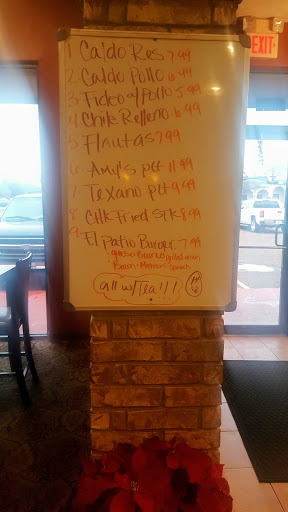 EXIT
1 Caldo Res 7.99
2 Caldo Pollo 6.99
3 Fideo w/ Pollo 5.99
4 Chile Relleno 6.99
5 Flautas 7.99
6 Amy's plt 11.99
7 Texano plt 9.99
8 Chk Fried Stk 8.99
9 El Patio Burger 7.99
queso Blanco, grilled onion
Bacon
all w/ Tea!!!